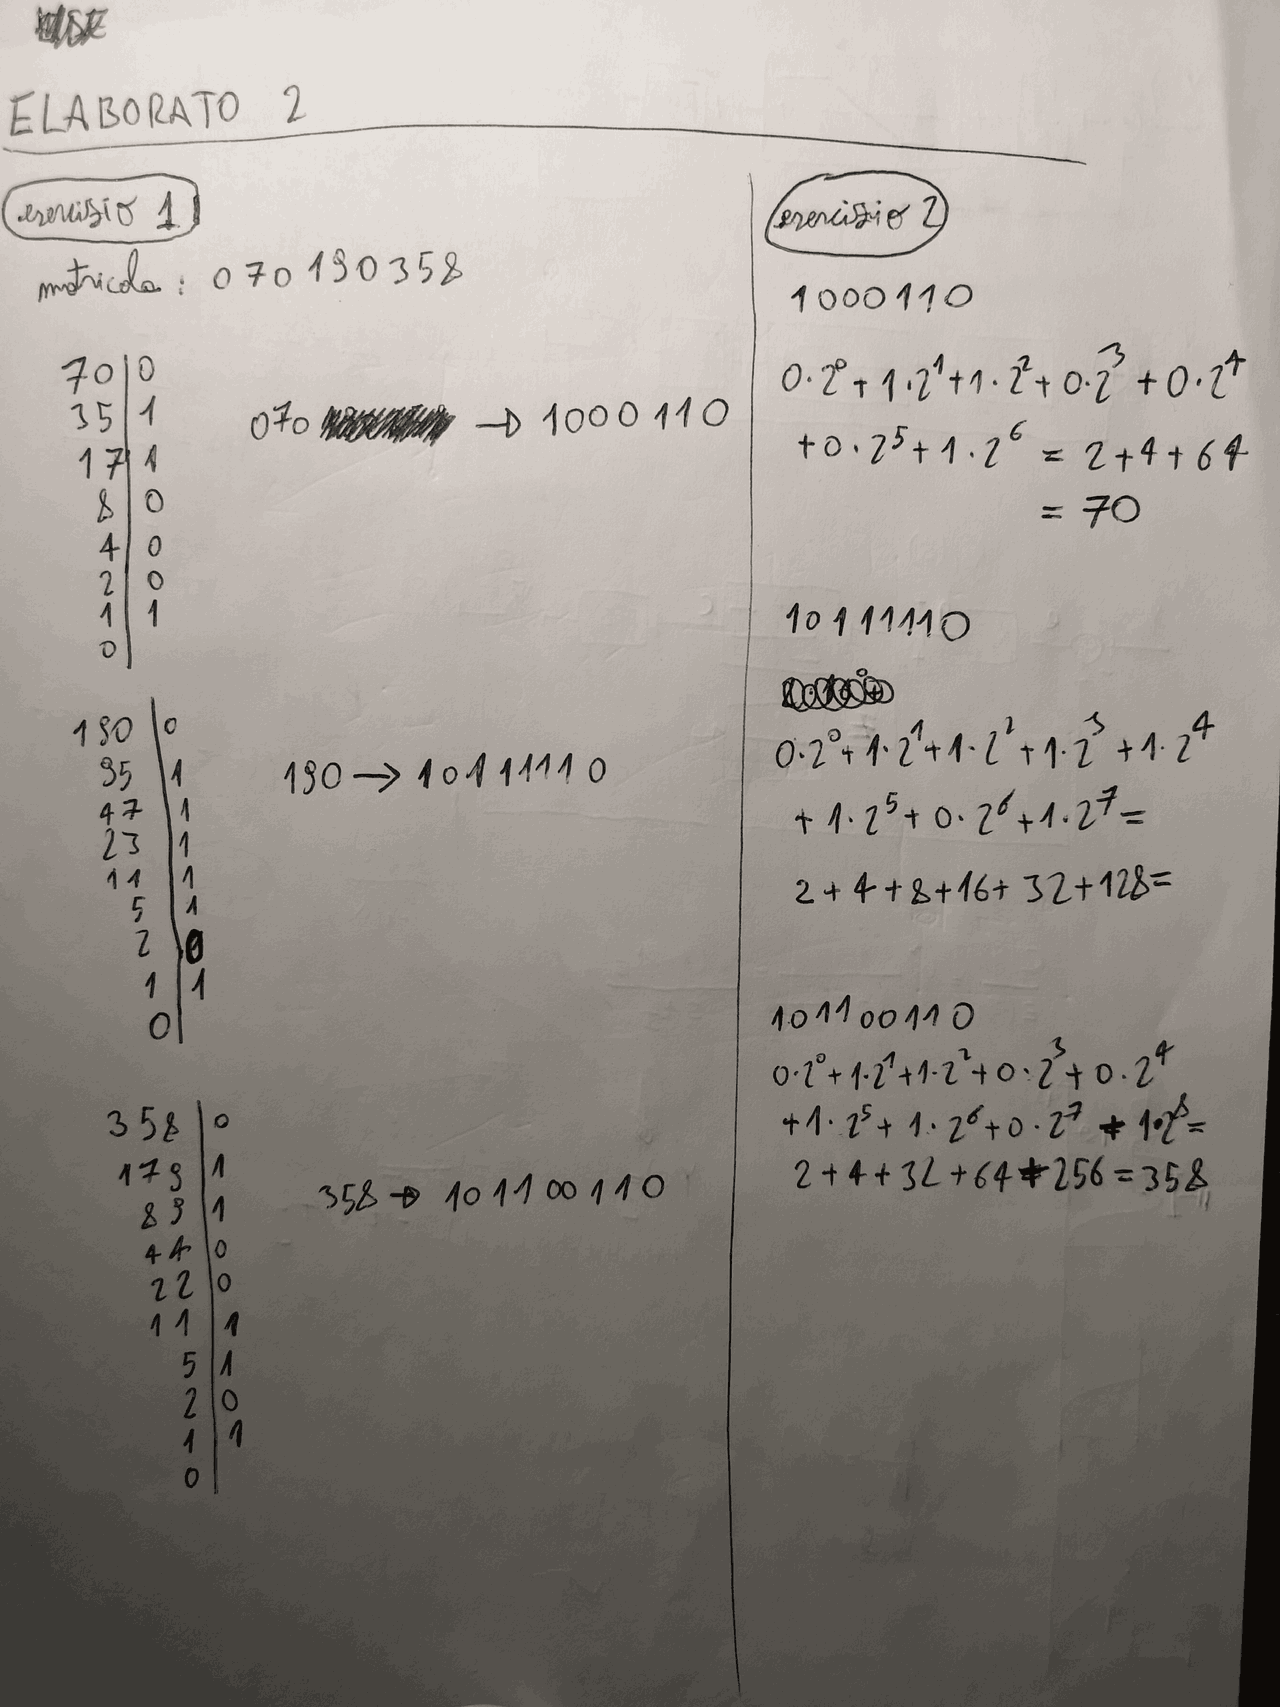 ELABORATO 2
esercizio 1
matricola: 070190358
70 | 0
35 | 1
17 | 1
8 | 0
4 | 0
2 | 0
1 | 1
0 |
070 → 1000110
190 | 0
95 | 1
47 | 1
23 | 1
11 | 1
5 | 1
2 | 0
1 | 1
0 |
190 → 10111110
358 | 0
179 | 1
89 | 1
44 | 0
22 | 0
11 | 1
5 | 1
2 | 0
1 | 1
0 |
358 → 101100110
esercizio 2
1000110
0·2⁰+1·2¹+1·2²+0·2³+0·2⁴
+0·2⁵+1·2⁶ = 2+4+64
= 70
10111110
0·2⁰+1·2¹+1·2²+1·2³+1·2⁴
+1·2⁵+0·2⁶+1·2⁷=
2+4+8+16+32+128=
101100110
0·2⁰+1·2¹+1·2²+0·2³+0·2⁴
+1·2⁵+1·2⁶+0·2⁷+1·2⁸=
2+4+32+64+256=358